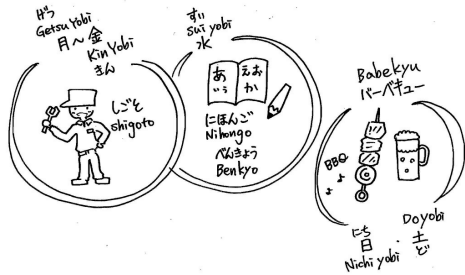 げつ
Getsu Yobi
月〜金
Kin Yobi
きん
しごと
shigoto
すい
sui yobi
水
あ えお
いう か
にほんご
Nihongo
べんきょう
Benkyo
Babekyu
バーベキュー
BBQ
にち
日・土
Nichi yobi
Doyobi
ど